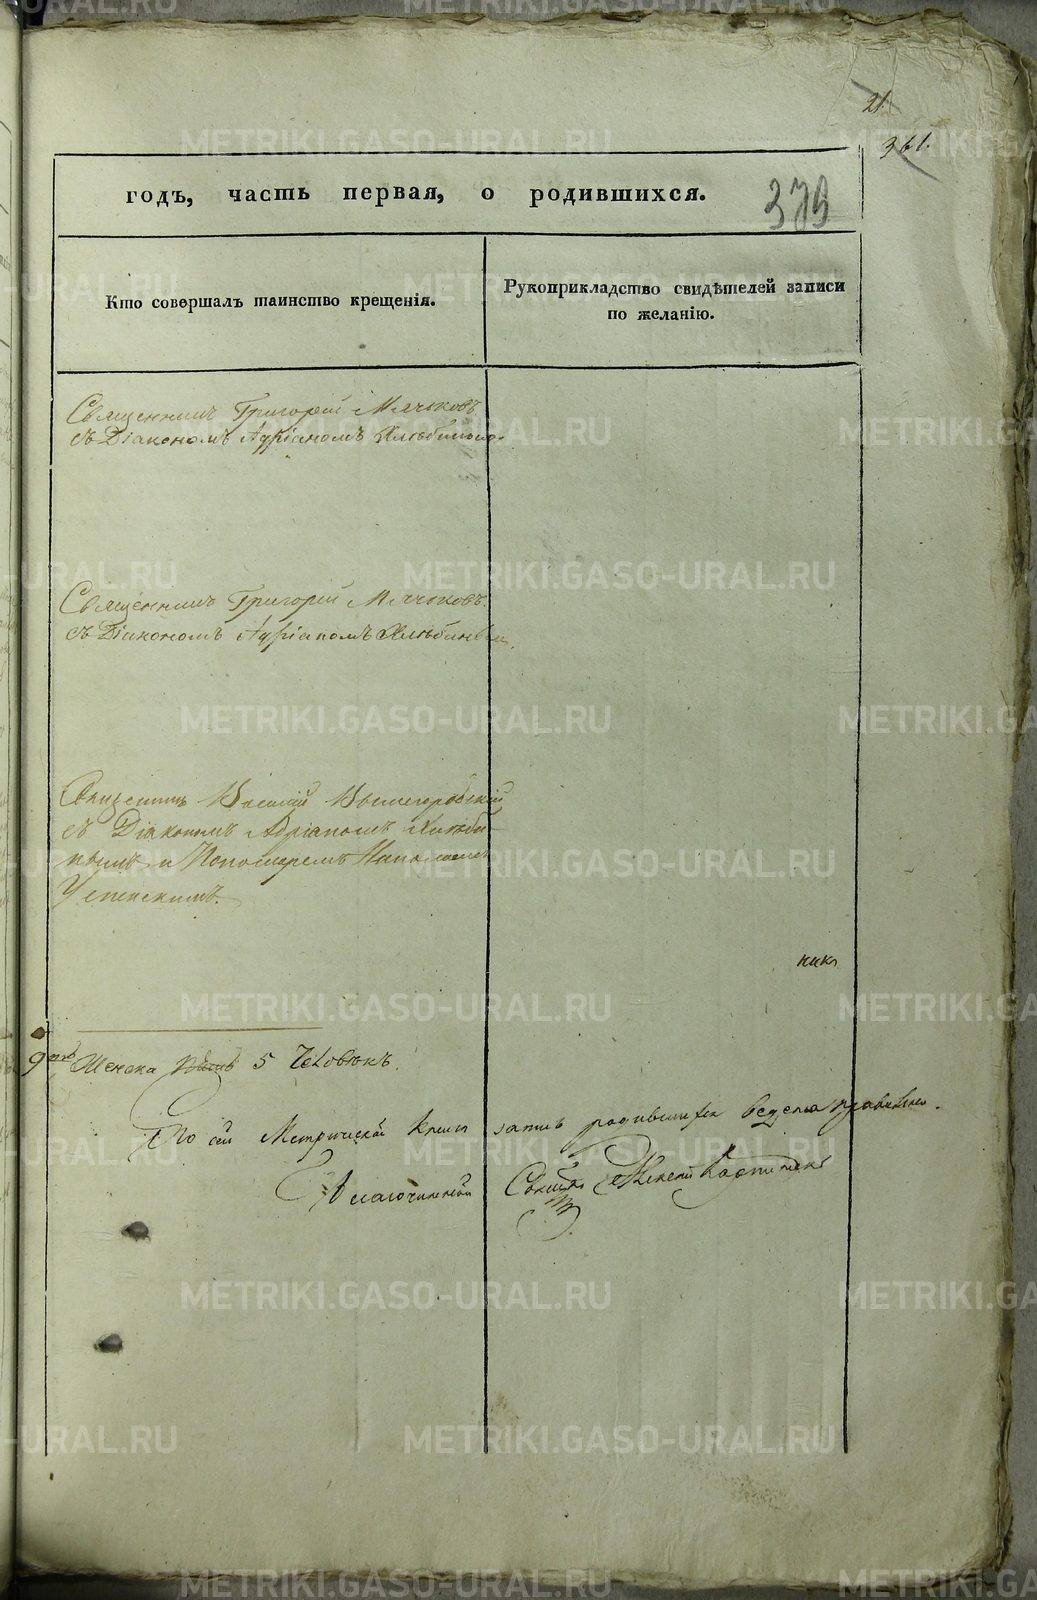 21.
361.
годъ, часть первая, о родившихся. 379
Кто совершалъ таинство крещенія.
Рукоприкладство свидѣтелей записи
по желанію.
Священникъ Григорій Мячковъ
съ Діакономъ Адріаномъ Хлѣбинымъ.
Священникъ Григорій Мячковъ
съ Діакономъ Адріаномъ Хлѣбинымъ.
Священникъ Василій Вышегоровскій
съ Діакономъ Адріаномъ Хлѣби-
нымъ и Пономаремъ
Успенскимъ.
никъ
Женска 5 Человѣкъ.
По сей Метрической Книги запись родившихся ведена правильно.
Благочинный
METRIKI.GASO-URAL.RU